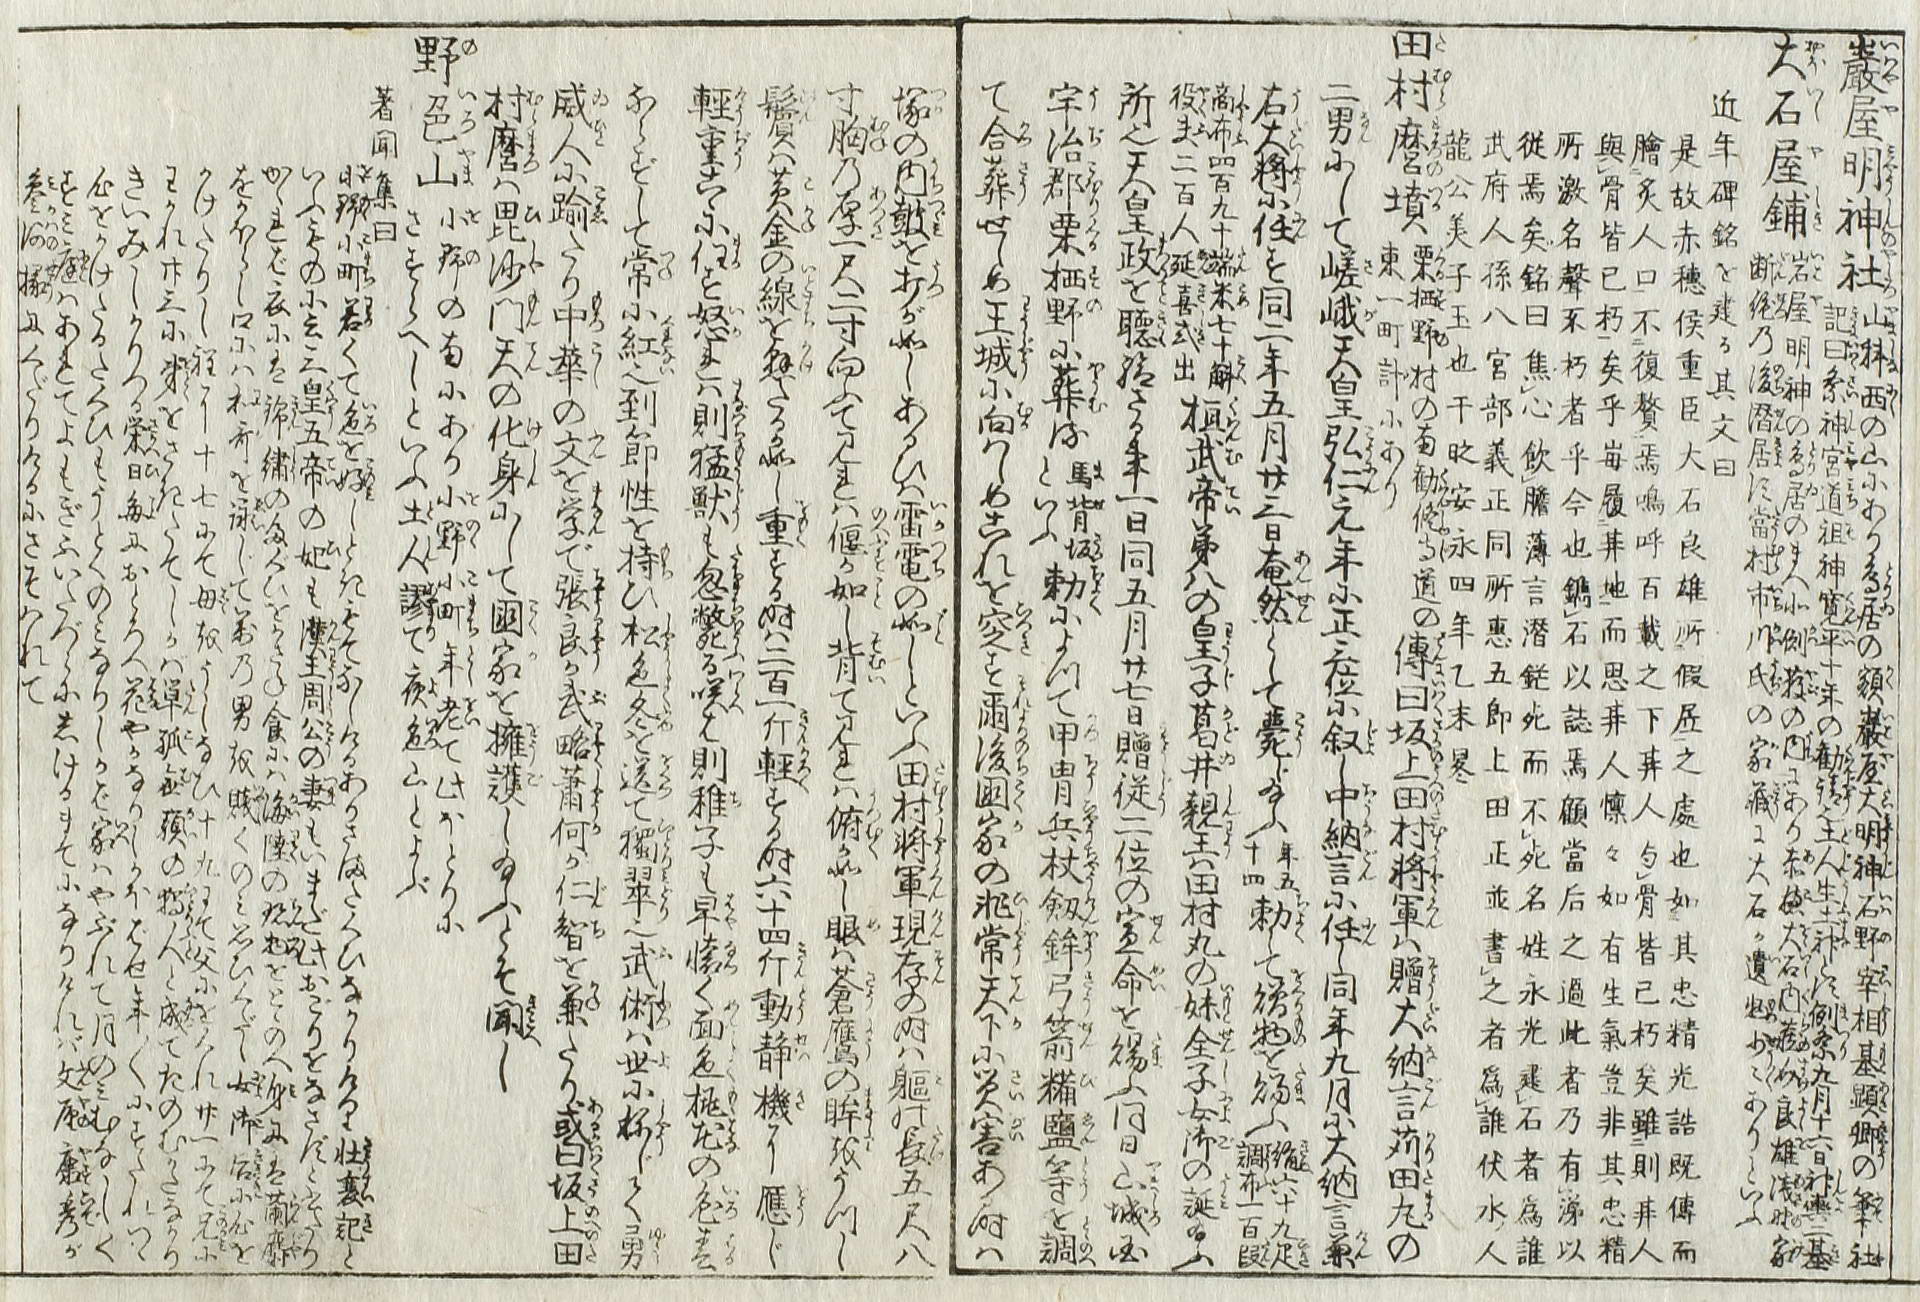 巖屋明神社 山科西の山にあり鳥居の額巖屋大明神石野宰相基顕卿の筆社
記曰祭神宮道祖神寛平十年の勧請也土人生土神とす例祭九月十六日神輿二基
大石屋鋪 岩屋明神の鳥居のまへ北側藪の内にあり赤穂大石内蔵助良雄浅野家
断絶の後潜居す當村市川氏の家蔵に大石が遺物少々ありといふ
近年碑銘を建る其文曰
是故赤穗侯重臣大石良雄所假居之處也如其忠精光誥既傳而
膾炙人口不復贅焉嗚呼百載之下其人与骨皆已朽矣雖則其人
與骨皆已朽矣乎毎履其地而思其人懍々如有生氣豈非其忠精
所激名聲不朽者乎今也鐫石以誌焉顧當后之過此者乃有涕以
從焉矣銘曰焦心飲膽薄言潜鋩死而不死名姓永光建石者為誰
武府人孫八宮部義正同所惠五郎上田正並書之者為誰伏水人
龍公美子玉也干时安永四年乙未冬
田村麿墳 栗栖野村の南勧修寺道の
東一町計にあり 傳曰坂上田村将軍ハ贈大納言苅田丸の
二男にして嵯峨天皇弘仁元年に正三位に叙し中納言に任し同年九月に大納言兼
右大将に任ず同二年五月廿三日奄然として薨じ給ふ 年五十四 勅して贈物を給ふ 絹六十九疋 調布一百段
商布四百九十端米七十斛
役夫二百人延喜式出 桓武帝第八の皇子葛井親王ハ田村丸の妹全子女御の誕給ふ
所也天皇政を聴給ざる事一日同五月廿七日贈従二位の宣命を賜ふ同日山城国
宇治郡栗栖野に葬る 馬背坂といふ 勅によつて甲冑兵杖剱鉾弓箭糒鹽等を調
て合葬せしめ王城に向ハしめこれを窆す爾後國家の非常天下に災害ある時ハ
塚の内鼓を打が如しあるひハ雷電の如しといふ田村将軍現存の時ハ軀の長五尺八
寸胸の厚一尺二寸向ふて見れハ偃が如し背て見れハ俯が如し眼ハ蒼鷹の眸をうつし
鬢ハ黄金の線を懸たるが如し重する時ハ二百一斤軽する時六十四斤動静機に應じ
輕重意に任す怒れハ則猛獣も忽斃る咲ハ則稚子も早懐く面色桃花の色春
ならずして常に紅也到節性を持ひ松色冬を送て獨翠也武術ハ世に稱じて勇
威人に踰たり中華の文を学で張良が武略蕭何が仁智を兼たり或曰坂上田
村麿ハ毘沙門天の化身にして國家を擁護し給ふとぞ聞へし
野色山 小野の南にあり小野小町年老て此ほとりに
さまよへしといふ土人謬て夜色山とよぶ
著聞集曰
小野小町若くて色を好しときもてなしけるありさまたくひなかりけり壮衰記と
いふものに云三皇五帝の妃も漢王周公の妻もいまだ此おごりをなさずと書たり
かゝれば衣にハ錦繍のたぐひをかさね食にハ海陸の珍物をとゝのへ身にハ蘭麝
をかほらし口にハ和哥を詠じて萬の男を賎くのミ思ひくだし女御后に心を
かけたりし程に十七にて母をうしなひ十九にて父におくれ廿一にて兄に
わかれ廿三に弟をさきたてしかバ単孤無頼の獨人と成てたのむかたなかり
きいみじかりつる栄日毎におとろへ花やかなりしかほばせ年々にすたれつゝ
心をかけたるたくひもうとくのミなりしかば家ハやぶれて月のミむなしく
すミ庭ハあれてよもぎふいたづらにしげるまてになりけれバ文屋康秀が
参河掾にてくだりけるにさそハれて